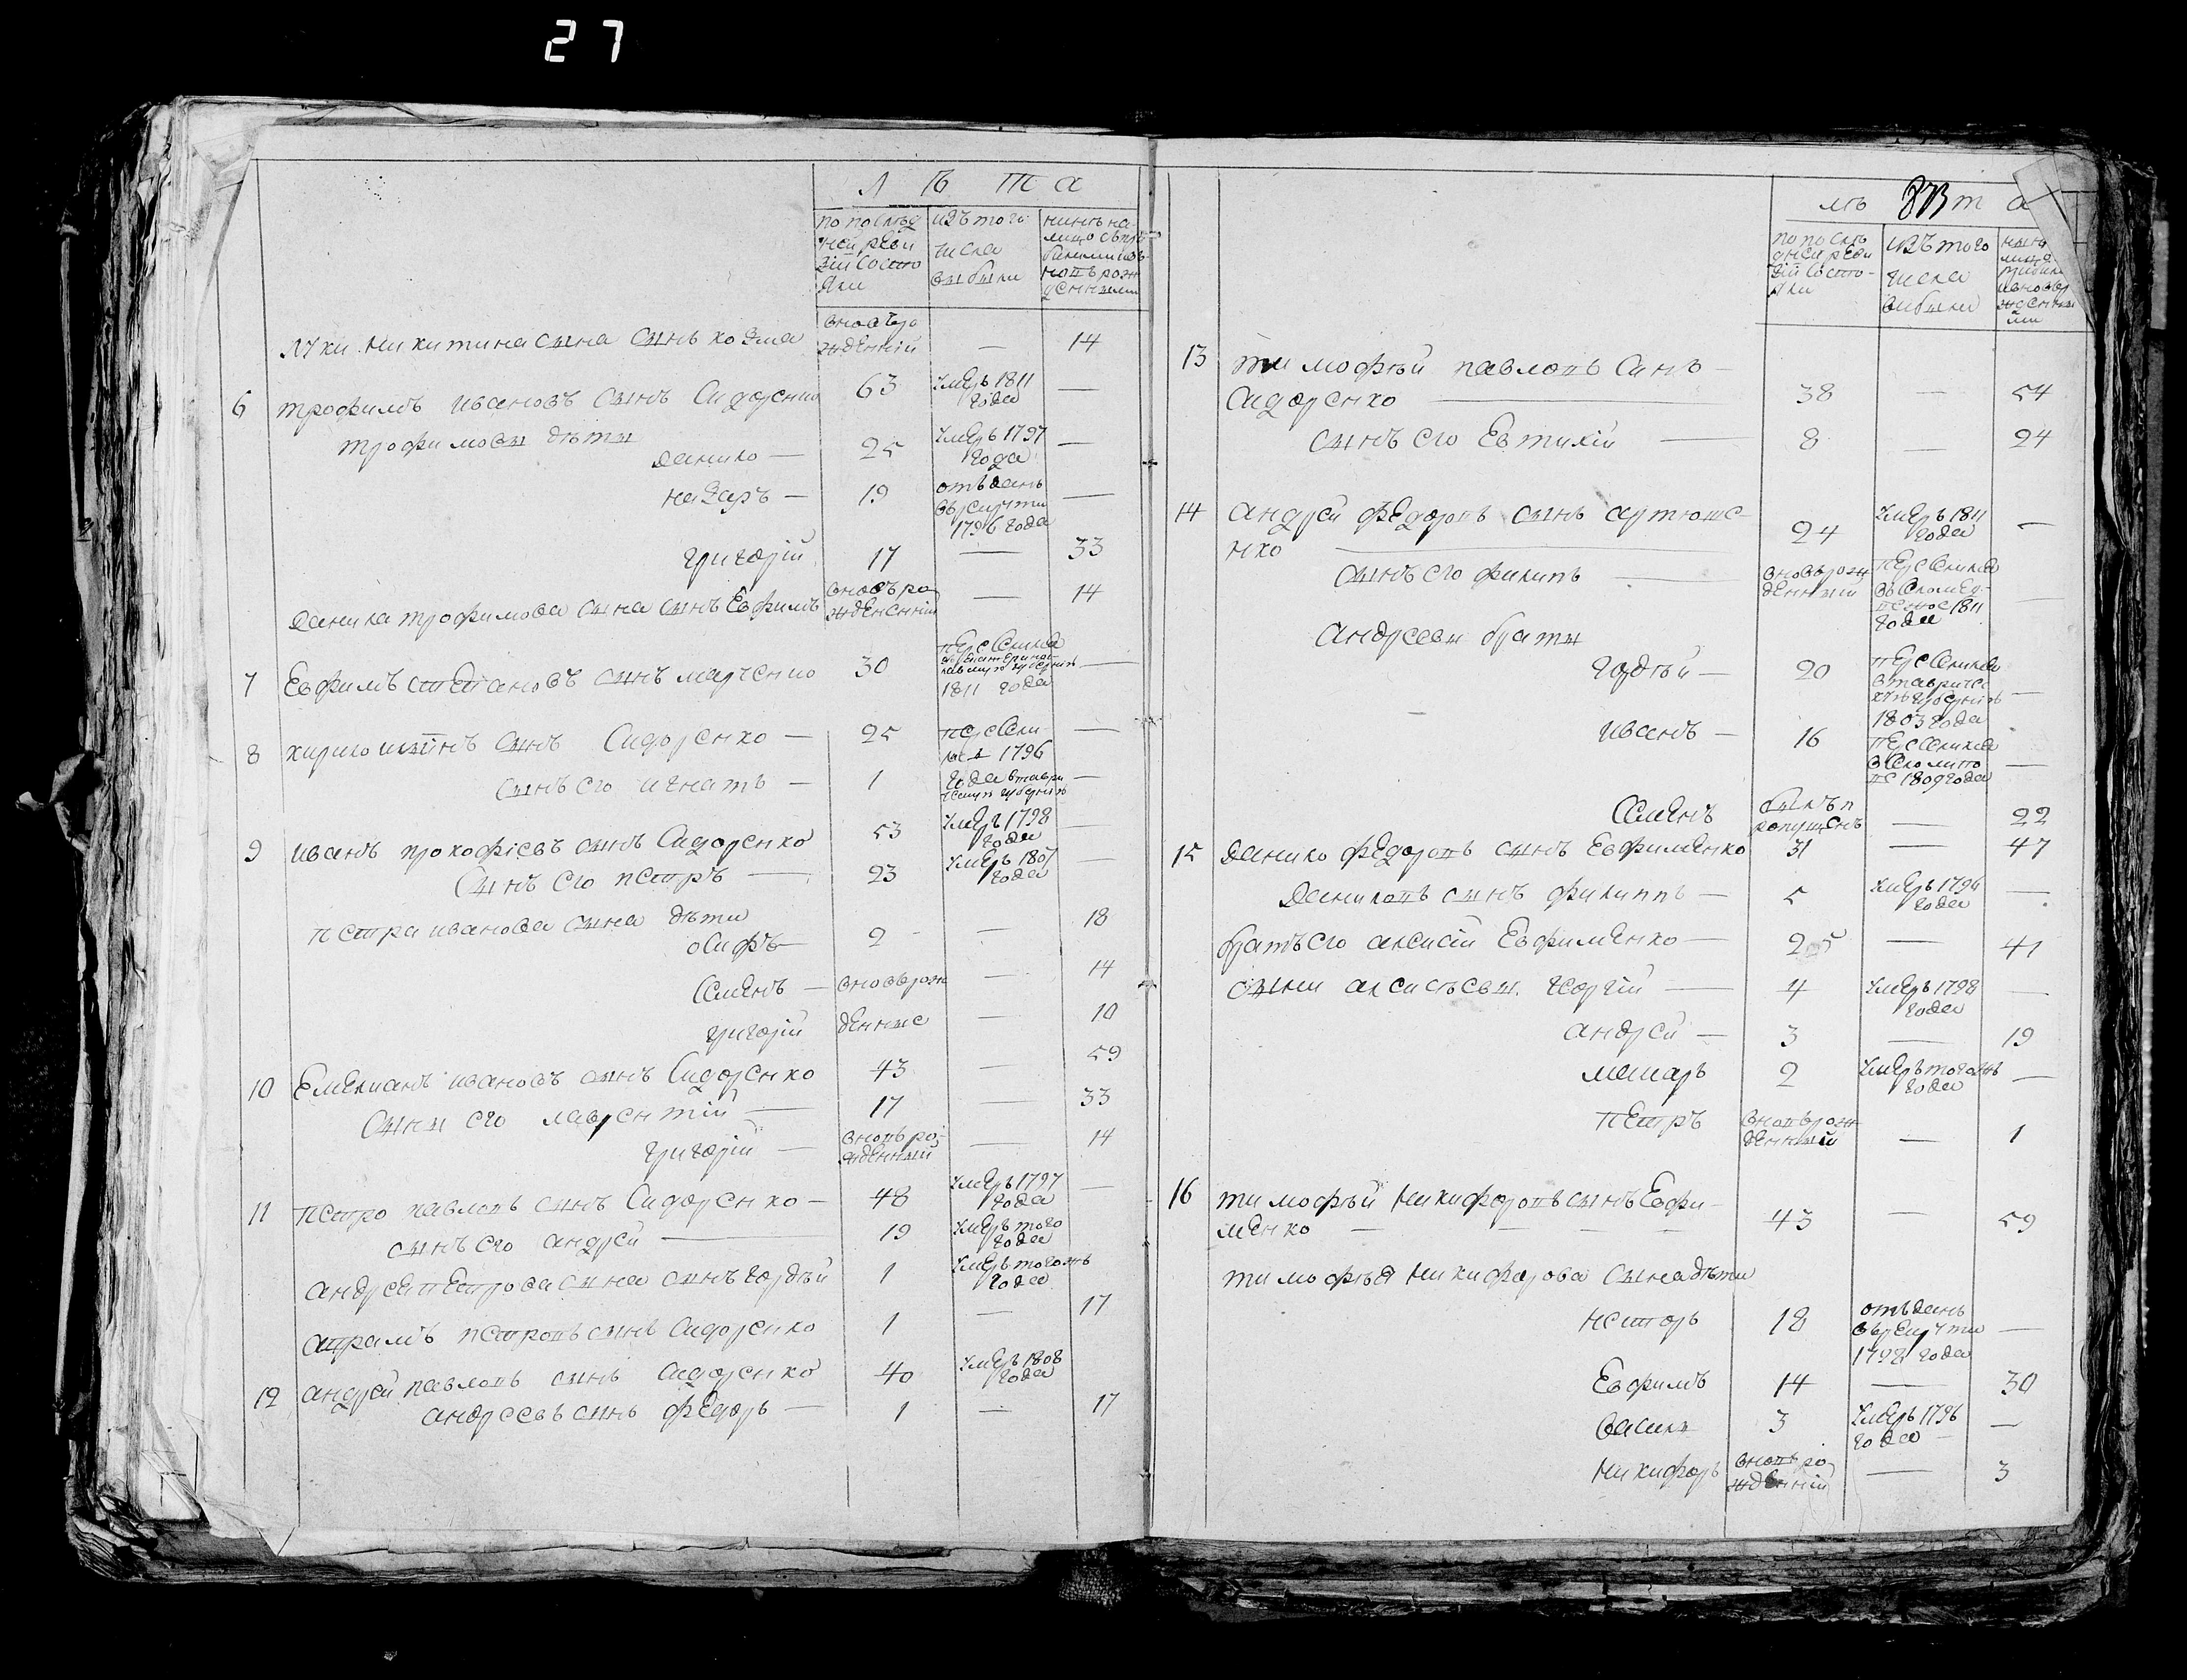 27
Л Ѣ Т А
по послѣд ней ревизіи состояли
изъ того числа выбыли
нынѣ на лицо съ прибылыми и вновь рожденными
Луки Никитина сына сынъ Козма вновь рожденній — 14
6 Трофимъ Ивановъ сынъ Сидоренко 63 умеръ 1811 года —
Трофимовы дѣты
Данило — 25 умеръ 1797 года —
Назаръ — 19 отъданъ врекруты 1796 года —
Григорій 17 — 33
Данила Трофимова сына сынъ Евфимъ вновь рожденній — 14
7 Евфимъ Степановъ сынъ Марченко 30 переселился 1811 года —
8 Кирило сынъ Сидоренко — 25 переселился 1796 —
сынъ его Игнатъ — 1 года втаврическую губернію —
9 Иванъ Прокофіевъ сынъ Сидоренко 53 умеръ 1798 года —
сынъ его Петръ — 23 умеръ 1807 года —
Петра Иванова сына дѣти
Осифъ — 2 — 18
Семенъ — вновь рож — 14
Григорій денные — 10
10 Емелианъ Ивановъ сынъ Сидоренко 43 — 59
сыны его Лаврентій — 17 — 33
Григорій — вновь рожденный — 14
11 Петро Павловъ сынъ Сидоренко — 48 умеръ 1797 года —
сынъ его Андрей — 19 умеръ того года
Андрея Петрова сына сынъ Гордѣй 1 умеръ тогожъ года
Петровъ сынъ Сидоренко 1 — 17
12 Андрей Павловъ сынъ Сидоренко 40 умеръ 1808 года
Андреевъ сынъ Федоръ — 1 — 17
873
лѣ т а
по послѣдней ревизіи состояли
изъ того числа выбыли
13 Тимофѣй Павловъ сынъ —
Сидоренко — 38 — 54
сынъ его Евтихій — 8 — 24
14 Андрей Федоровъ сынъ Артюше-
нко — 24 умеръ 1811 года —
сынъ его Филипъ — вновь рожденный переселился 1811 года —
Андреевы браты
Гордѣй — 20 переселился втаврическую губернію 1803 года —
Иванъ — 16 переселился 1809 года —
Семенъ былъ пропущенъ — 22
15 Данило Федоровъ сынъ Евфименко 31 — 47
Даниловъ сынъ Филиппъ — 5 умеръ 1796 года —
братъ его Алексій Евфименко — 25 — 41
сыны Алексѣевы Георгій — 4 умеръ 1798 года —
Андрей — 3 — 19
Макаръ 2 умеръ тогожъ года —
Петръ вновь рожденный — 1
16 Тимофѣй Никифоровъ сынъ Евфи-
менко — 43 — 59
Тимофѣя Никифорова сына дѣти
Несторъ 18 отъданъ врекруты 1798 года —
Евфимъ 14 — 30
Василь 3 умеръ 1796 года —
Никифоръ вновь рожденній — 3